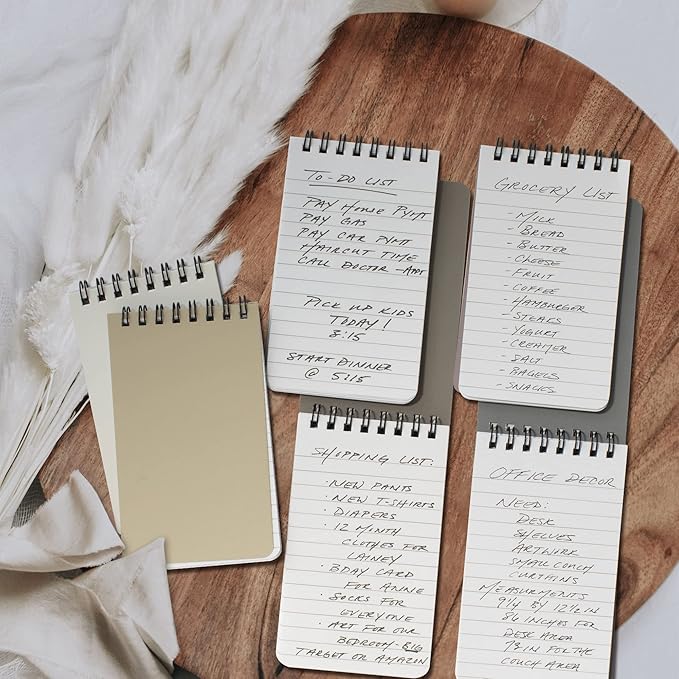 TO-DO LIST
PAY HOUSE PYMT
PAY GAS
PAY CAR PYMT
HAIRCUT TIME
CALL DOCTOR - APPT
PICK UP KIDS
TODAY!
3:15
START DINNER
@ 5:15
GROCERY LIST
- MILK
- BREAD
- BUTTER
- CHEESE
- FRUIT
- COFFEE
- HAMBURGER
- STEAKS
- YOGURT
- CREAMER
- SALT
- BAGELS
- SNACKS
SHOPPING LIST:
· NEW PANTS
· NEW T-SHIRTS
· DIAPERS
· 12 MONTH
CLOTHES FOR
LAINEY
· BDAY CARD
FOR ANNIE
· SOCKS FOR
EVERYONE
· ART FOR OUR
BEDROOM-
TARGET OR AMAZON
OFFICE DECOR
NEED:
DESK
SHELVES
ARTWORK
SMALL COUCH
CURTAINS
MEASURMENTS
BY IN
86 INCHES FOR
DESK AREA
FOR THE
COUCH AREA